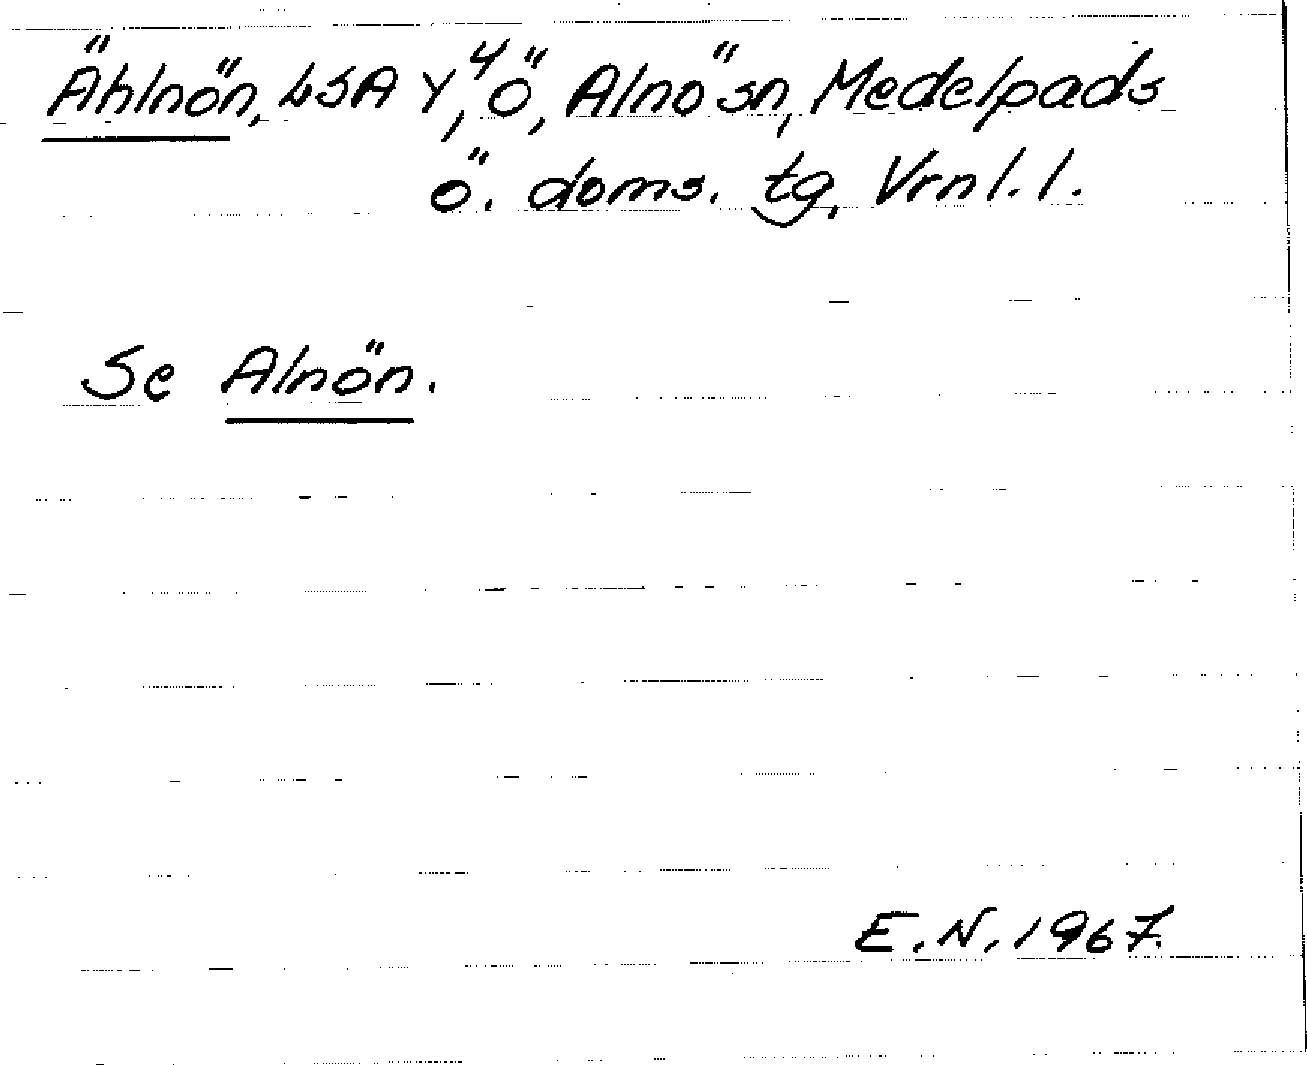 Ählnön, LSA Y⁴, Ö, Alnö sn, Medelpads
ö. doms. tg, Vrnl. l.
Se Alnön.
E. N. 1967.